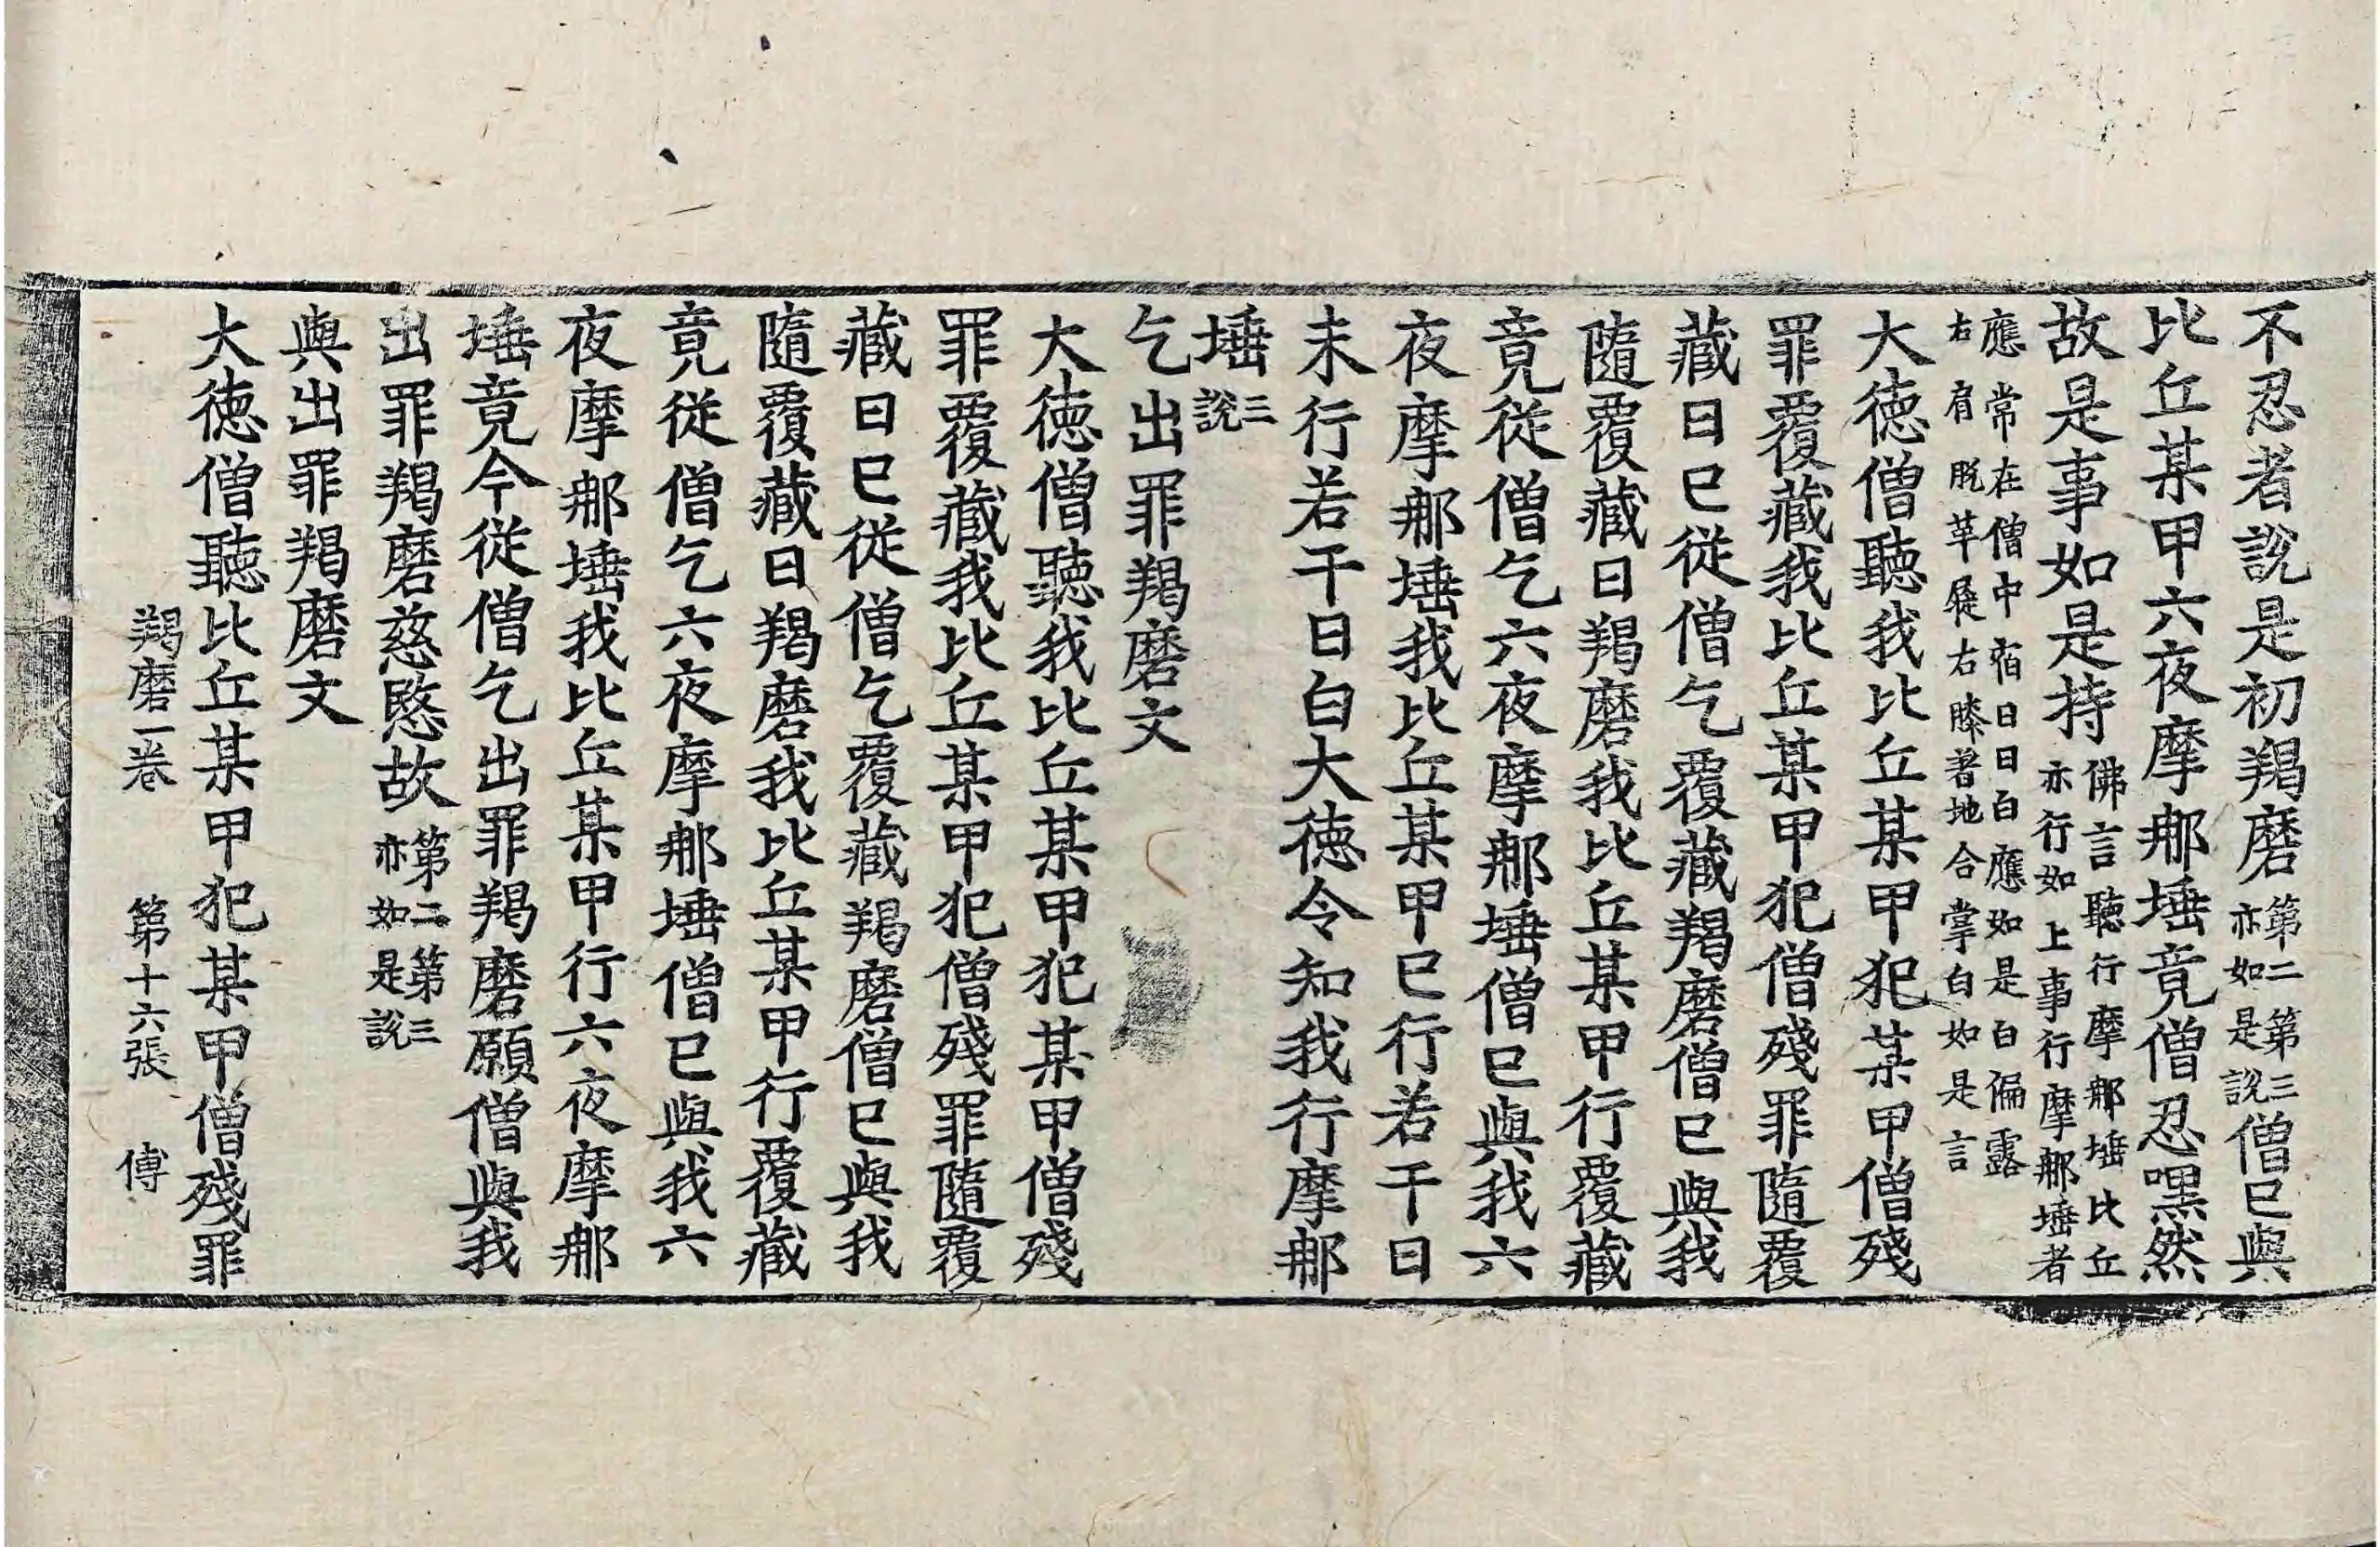 不忍者說是初羯磨第二第三亦如是說僧已與
比丘某甲六夜摩那埵竟僧忍嘿然
故是事如是持佛言聽行摩那埵比丘亦行如上事行摩那埵者
應常在僧中宿日日白應如是白偏露右肩脫革屣右膝著地合掌白如是言
大德僧聽我比丘某甲犯某甲僧殘
罪覆藏我比丘某甲犯僧殘罪隨覆
藏日已從僧乞覆藏羯磨僧已與我
隨覆藏日羯磨我比丘某甲行覆藏
竟從僧乞六夜摩那埵僧已與我六
夜摩那埵我比丘某甲已行若干日
未行若干日白大德令知我行摩那
埵三說
乞出罪羯磨文
大德僧聽我比丘某甲犯某甲僧殘
罪覆藏我比丘某甲犯僧殘罪隨覆
藏日已從僧乞覆藏羯磨僧已與我
隨覆藏日羯磨我比丘某甲行覆藏
竟從僧乞六夜摩那埵僧已與我六
夜摩那埵我比丘某甲行六夜摩那
埵竟今從僧乞出罪羯磨願僧與我
出罪羯磨慈愍故第二第三亦如是說
與出罪羯磨文
大德僧聽比丘某甲犯某甲僧殘罪
羯磨一卷 第十六張 傅